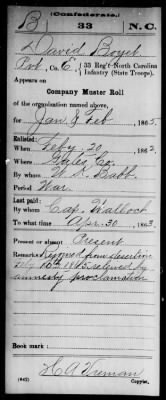 (Confederate.)
B 33 N.C.
David Boyet
Pvt, Co. E, 33 Reg't North Carolina
Infantry (State Troops).
Appears on
Company Muster Roll
of the organization named above,
for Jan & Feb, 1865.
Enlisted:
When Feby 20, 1862
Where Gates Co.
By whom W. S. Babb
Period War
Last paid:
By whom Cap. Wallock
To what time Apr. 30, 1863.
Present or absent Present
Remarks: Rejoined from desertion
Feby 16th 1865 relieved by
amnesty proclamation
Book mark:
H A Vroman
(642) Copyist.